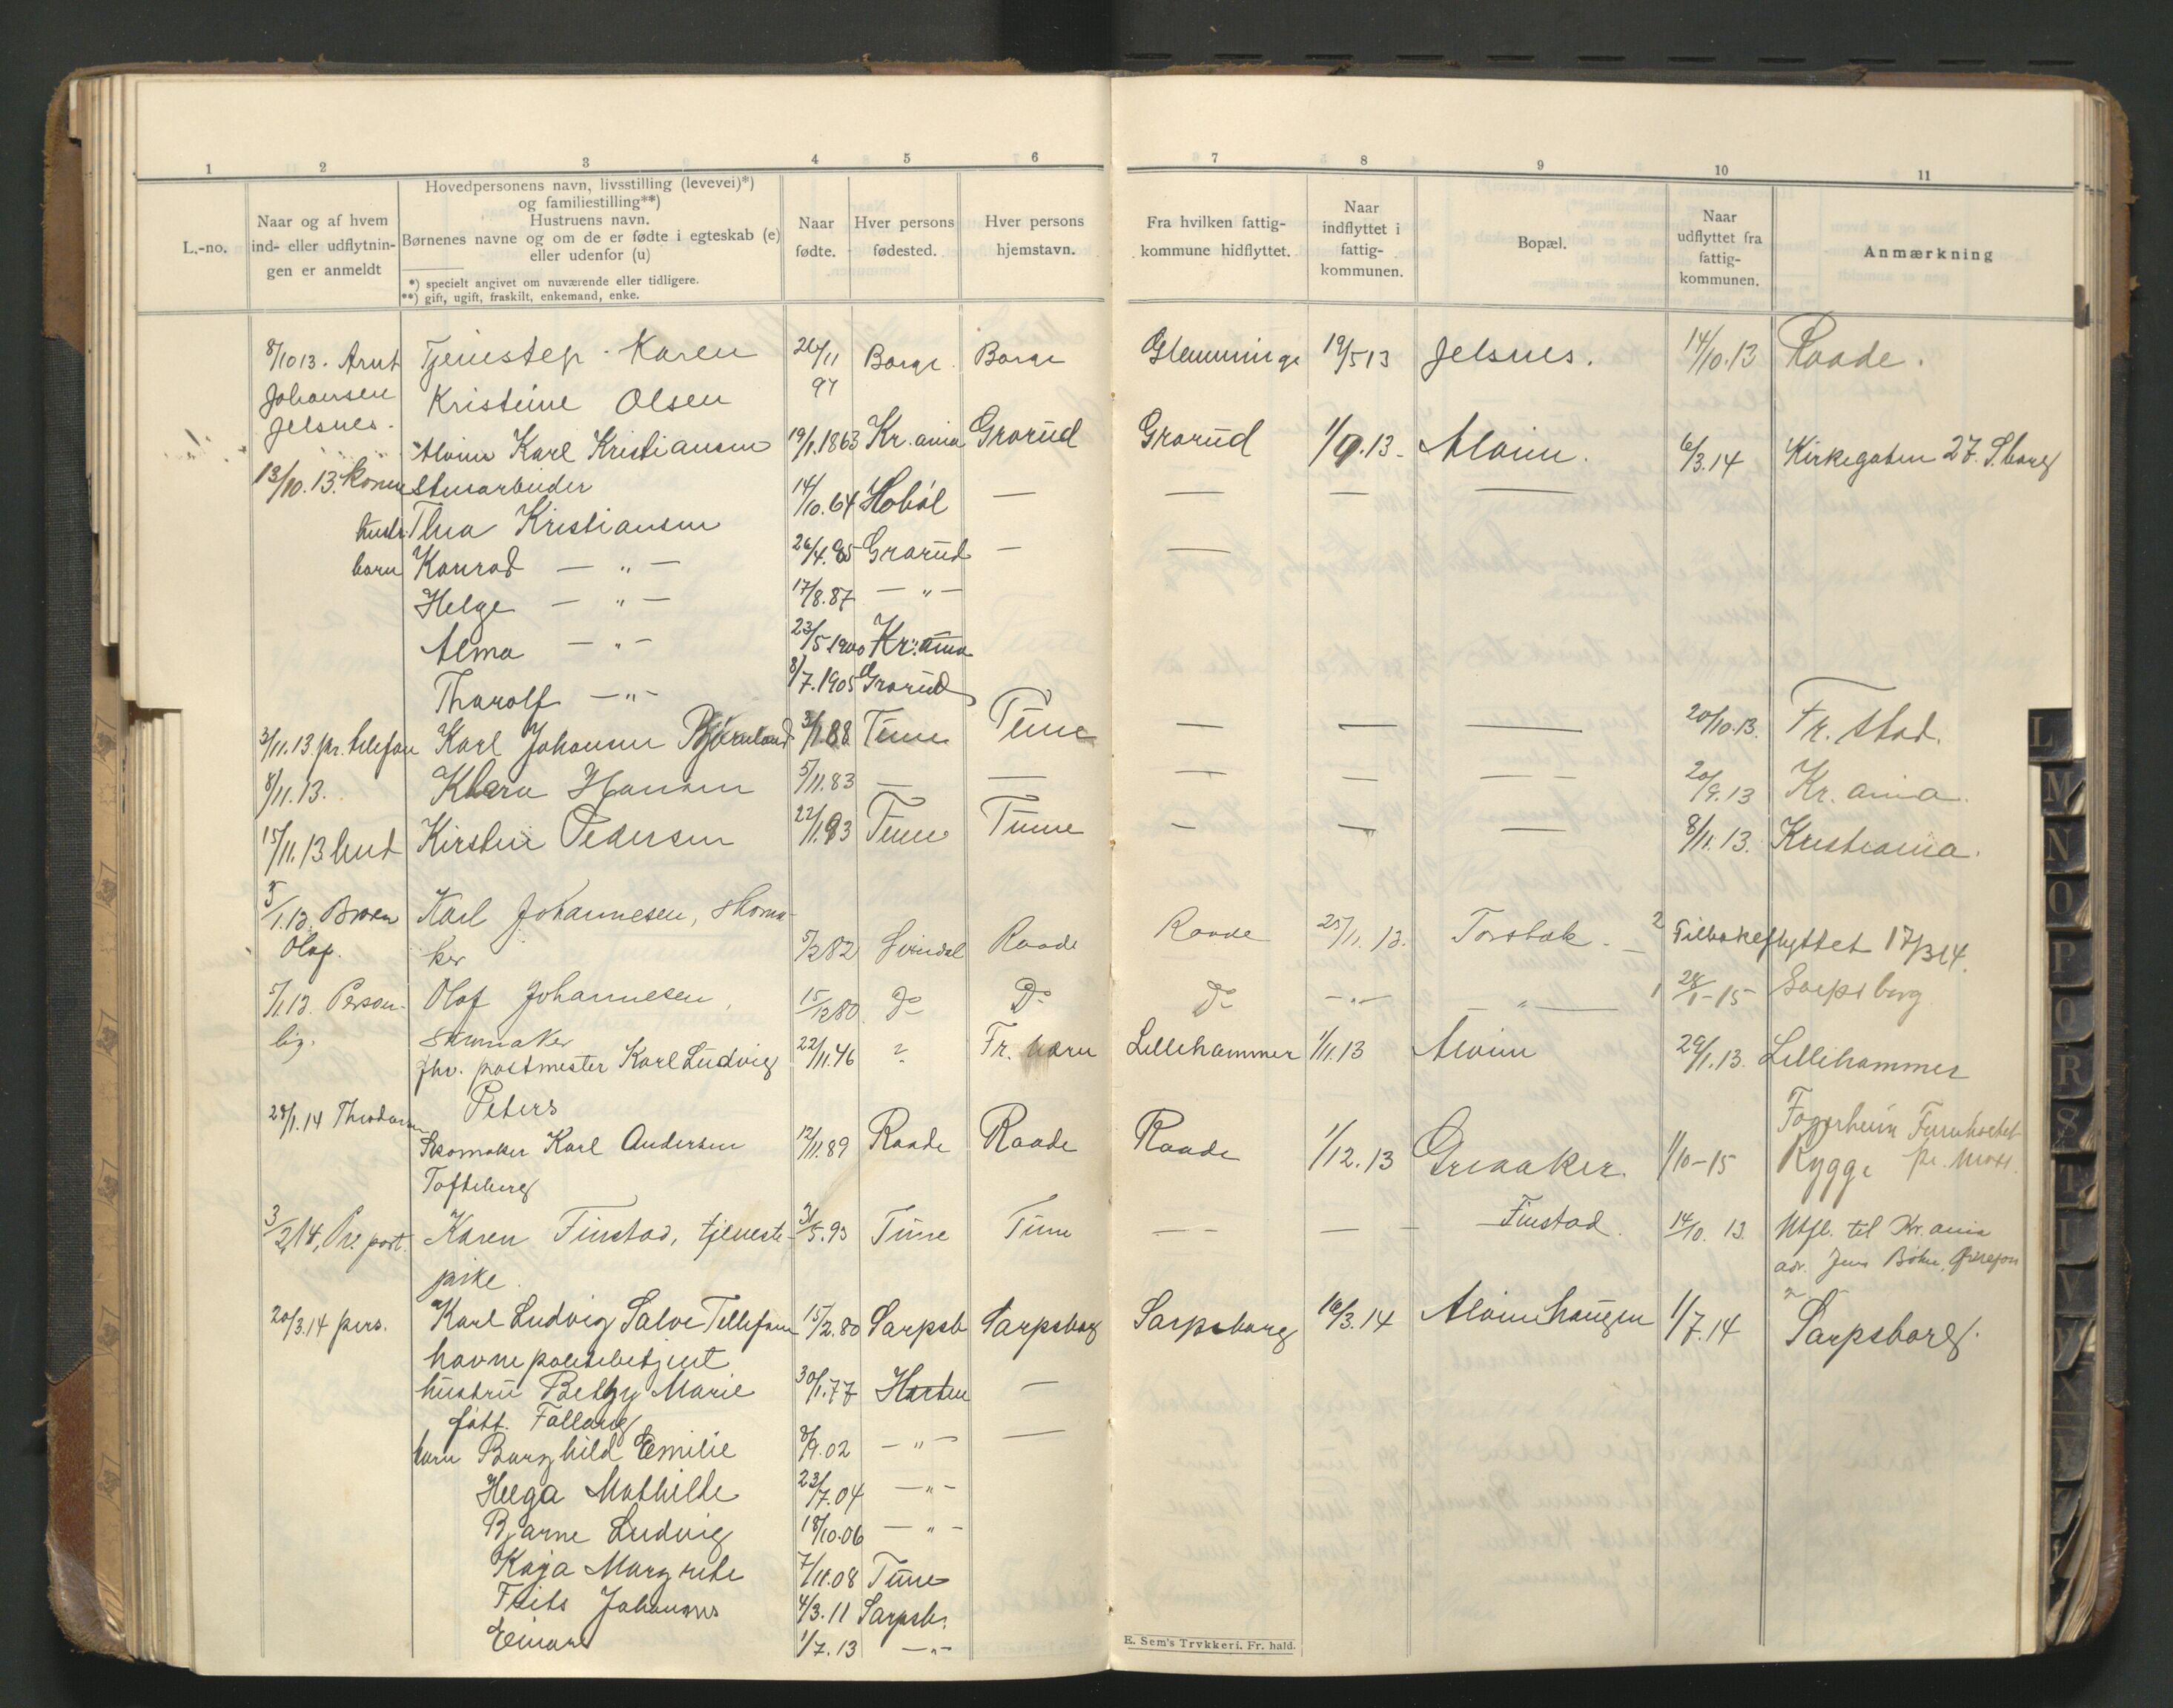 1 2 3 4 5 6 7 8 9 10 11
L.-no.
Naar og af hvem ind- eller udflytnin- gen er anmeldt
Hovedpersonens navn, livsstilling (levevei)*)
og familiestilling**)
Hustruens navn.
Børnenes navne og om de er fødte i egteskab (e)
eller udenfor (u)
*) specielt angivet om nuværende eller tidligere.
**) gift, ugift, fraskilt, enkemand, enke.
Naar fødte.
Hver persons fødested.
Hver persons hjemstavn.
Fra hvilken fattig- kommune hidflyttet.
Naar indflyttet i fattig- kommunen.
Bopæl.
Naar udflyttet fra fattig- kommunen.
Anmærkning
8/10 13. Arnt Tjenestep. Karen 26/11 Borge. Borge Glemminge 19/5 13 Jelsnes. 14/10.13 Raade.
Johansen Kristine Olsen 97
Jelsnes.
Alvin Karl Kristiansen 19/1.1863 Kr.ania Grorud Grorud 1/9.13. Alvim. 6/3.14 Kirkegaten 27. S.borg
13/10.13. Konen Stenarbeider
hustr. Thea Kristiansen 14/10.64 Hobøl — — — —
barn Konrad — „ — 26/4.85 Grorud — —
Helge — „ — 17/8.87 — „ —
Alma — „ — 23/5 1900 Kr.ania
Tharolf — „ — 8/7.1905 Grorud
3/11.13 pr. telefon Karl Johansen Bjørnland 3/1.88 Tune Tune — — — 20/10.13. Fr.stad.
8/11.13. Klara Hansen 5/11.83 — — — — — 20/9.13 Kr.ania.
15/11.13 Lund Kirstin Pedersen 22/1.93 Tune Tune — — — 8/11.13. Kristiania.
5/1.13. Broen Karl Johannesen, skoma-
Olaf. ker 5/2 82 Raade Raade 25/11.13. Torsbæk. — 2 Tilbakeflyttet 17/3 14.
5/1.13. Person- Olaf Johannesen, 15/12 80 Do Do Do — „ — — „ — 1 28/1-15 Sarpsborg.
lig. skumaker
fhv. postmester Karl Ludvig 22/11.46 ? Fr.værn Lillehammer 1/11.13 Alvim 29/1.13. Lillehammer
Peters
28/1.14 Skomaker Karl Andersen 12/11.89 Raade Raade Raade 1/12.13 Greaaker. 1/10-15 Fagerheim
Tofteberg Rygge pr. Moss.
3/2 14, Pr. post. Karen Finstad, tjeneste- 31/5.93 Tune Tune — — — — Finstad. 14/10.13. Utfl. til Kr.ania
pike. adr. Jens
20/3.14 pers. Karl Ludvig Salve Tellefsen 15/2.80 Sarpsb Sarpsborg Sarpsborg 16/3.14 Alvimhaugen 1/7.14 Sarpsborg.
havnepolitibetjent
hustru Betzy Marie 30/1.77 Horten —
født. Fallang
barn Borghild Emilie 8/9.02 — „ — —
Helga Mathilde 23/7.04 — „ —
Bjarne Ludvig 18/10.06 — „ —
Kaja Margrete 7/11.08 Tune
Frits Johannes 4/3.11 Sarpsb.
Einar 1/7.13 — „ —
E. Sem's Trykkeri. Fr. hald.
L
M
N
O
P
Q
R
S
T
U
V
Y
X